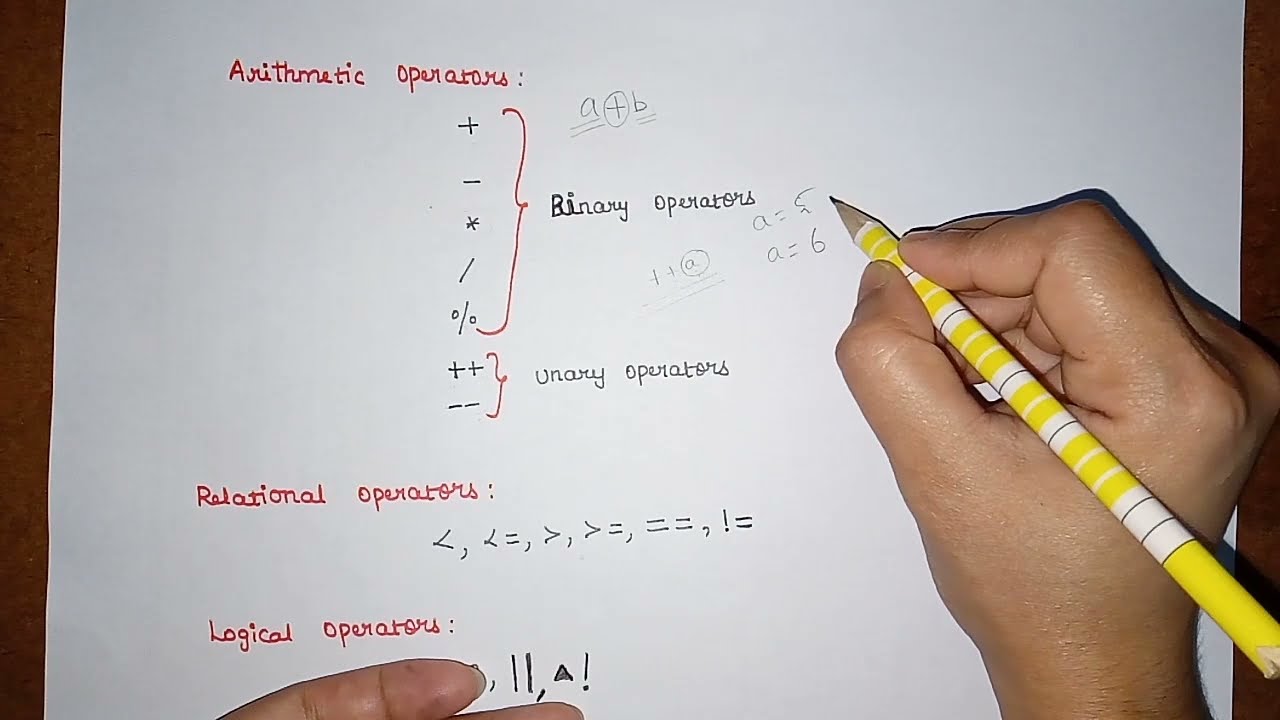 Arithmetic Operators:
+
a+b
-
*
Binary Operators
a = 5
a = 6
/
++a
%
++
Unary Operators
--
Relational Operators:
<, <=, >, >=, ==, !=
Logical Operators:
, ||, !